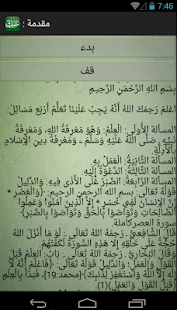 7:46
مقدمة :
بدء
قف
بِسْمِ اللَّهِ الرَّحْمَنِ الرَّحِيمِ
اعْلمْ رَحِمَكَ اللهُ أَنَّهُ يَجِبُ عَلَيْنَا تَعَلُّمُ أَرْبَعِ مَسَائِلَ:
المسألة الأُولَى: الْعِلْمُ: وَهُوَ مَعْرِفَةُ اللهِ، وَمَعْرِفَةُ
نَبِيِّهِ، وَمَعْرِفَةُ دِينِ الإِسْلامِ
بالأَدِلَّةِ.
المسألة الثَّانِيَةُ: الْعَمَلُ بِهِ
المسألة الثَّالِثَةُ: الدَّعْوَةُ إِلَيْهِ
المسألة الرَّابِعَةُ: الصَّبْرُ عَلَى الأَذَى فِيهِ. وَالدَّلِيلُ
قَوْلُهُ تَعَالَى: {وَالْعَصْرِ *
إِنَّ الإِنسَانَ لَفِي خُسْرٍ * إِلاَّ الَّذِينَ آمَنُوا وَعَمِلُوا
الصَّالِحَاتِ وَتَوَاصَوْا بِالْحَقِّ وَتَوَاصَوْا بِالصَّبْرِ}
[سورة العصر كاملة].
قَالَ الشَّافِعيُّ ـ رَحِمَهُ اللهُ تَعَالَى ـ: لَوْ مَا أَنْزَلَ اللهُ
حُجَّةً عَلَى خَلْقِهِ إِلا هَذِهِ السُّورَةَ لَكَفَتْهُمْ
وَقَالَ البُخَارِيُّ ـ رَحِمَهُ اللهُ تَعَالَى ـ: بَابُ: العِلْمُ قَبْلَ
القَوْلِ وَالْعَمَلِ
إِلَهَ إِلاَّ اللَّهُ وَاسْتَغْفِرْ لِذَنبِكَ} [محمد:19]. فَبَدَأَ بِالْعِلْمِ
(قَبْلَ القَوْلِ وَالعَمَلِ)(1)